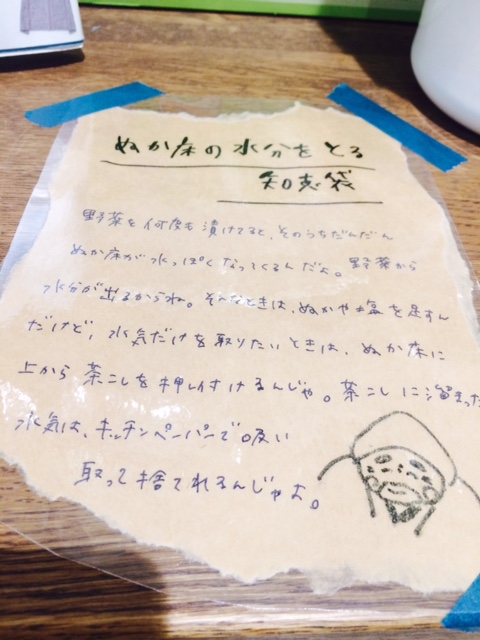 ぬか床の水分をとる
知恵袋
野菜を何度も漬けてると、そのうちだんだん
ぬか床が水っぽくなってくるんだよ。野菜から
水分が出るからね。そんなときは、ぬかや塩を足すん
だけど、水気だけを取りたいときは、ぬか床に
上から茶こしを押し付けるんじゃ。茶こしに溜まった
水気は、キッチンペーパーで吸い
取って捨てれるんじゃよ。